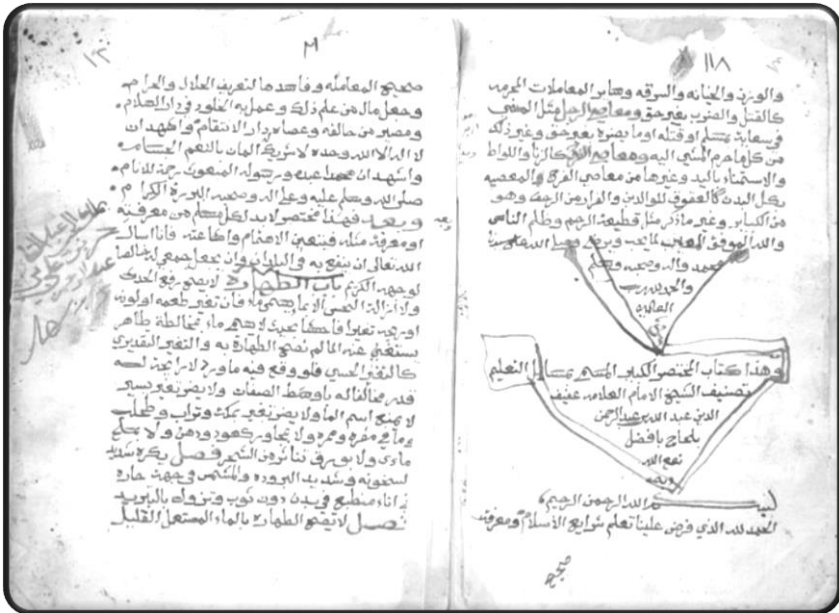 ١١٨
والوزن والخيانه والسرقه وسائر المعاملات المحرمه
كالقتل والضرب بغير حق ومعاصي الرجل مثل المشي
في سعاية بمسلم او قتله او ما يضره بغير حق وغير ذلك
من كل ما حرم المشي اليه ومعاصي الفرج كالزنا واللواط
والاستمناء باليد وغيرها من معاصي الفرج والمعصيه
بكل البدن كالعقوق للوالدين والفرار من الزحف وهو
من الكبائر وغير ما ذكر مثل قطيعة الرحم وظلم الناس
والله الموفق لما يحب ويرضى وصلى الله على سيدنا
محمد واله وصحبه وسلم
والحمد لله رب
العالمين
وهذا كتاب المختصر الكبير المسمى بمسائل التعليم
تصنيف الشيخ الامام العلامه عفيف
الدين عبد الله بن عبد الرحمن
بلحاج بافضل
نفع الله
به
بسم الله الرحمن الرحيم
الحمد لله الذي فرض علينا تعلم شرايع الاسلام ومعرفة
صحيح
صحيح المعامله وفاسدها لتعريف الحلال والحرام
وجعل مال من علم ذلك وعمل به الخلود في دار السلام
ومصير من خالفه وعصاه دار الانتقام واشهد ان
لا اله الا الله وحده لا شريك له المان بالنعم الجسام
واشهد ان محمدا عبده ورسوله المبعوث رحمة للانام
صلى الله وسلم عليه وعلى اله وصحبه البررة الكرام
وبعد فهذا مختصر لا بد لكل مسلم من معرفته
او معرفة مثله فيتعين الاهتمام واشاعته فانا اسال
الله تعالى ان ينفع به وان يجعل جمعي له خالصا
لوجهه الكريم باب الطهارة لا يصح رفع الحدث
ولا ازالة النجس الا بما يسمى ماء فان تغير طعمه او لونه
او ريحه تغيرا فاحشا بحيث لا يسمى ماء بمخالطة طاهر
يستغني عنه الما لم تصح الطهارة به والتغير التقديري
كالتغير الحسي فلو وقع فيه ماء ورد لا رايحة له
قدر مخالفا له باوسط الصفات ولا يضر تغير يسير
لا يمنع اسم الما ولا يضر تغير بمكث وتراب وطحلب
وما في مقره وممره ولا بمجاور كعود ودهن ولا بملح
مائي ولا بورق تناثر من الشجر فصل يكره شديد
السخونه وشديد البروده والمشمس في جهة حاره
في اناء منطبع في بدن دون ثوب وتزول بالتبريد
فصل لا تصح الطهارة بالماء المستعمل القليل